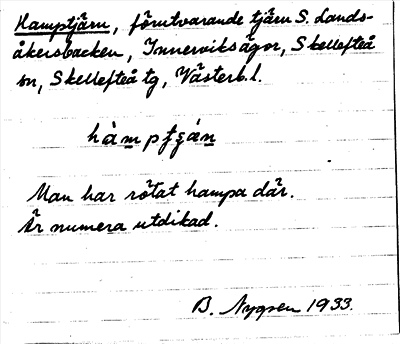 Hamptjärn, förutvarande tjärn S. Lands-
åkersbacken, Innerviksägor, Skellefteå
sn, Skellefteå tg, Västerb. l.
hàmpʃǥán
Man har rötat hampa där.
Är numera utdikad.
B. Nygren 1933.